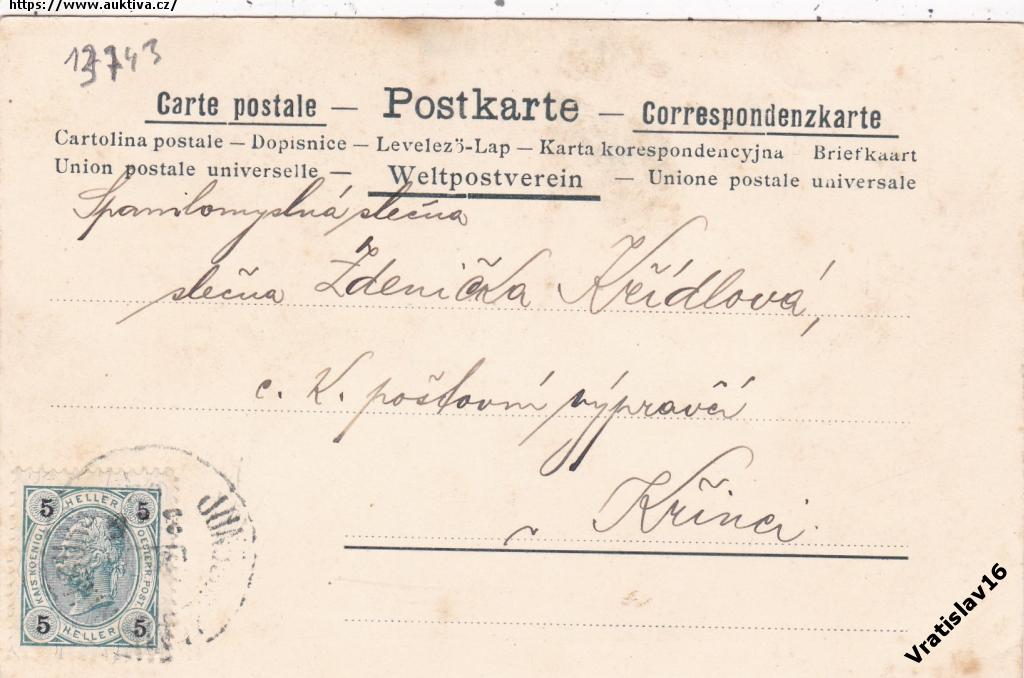 https://www.auktiva.cz/
Carte postale — Postkarte — Correspondenzkarte
Cartolina postale — Dopisnice — Levelező-Lap — Karta korespondencyjna Briefkaart
Union postale universelle — Weltpostverein — Unione postale universale
slečna
slečna Zdenička Křídlová,
c. k. poštovní výpravčí
v Křinci.
5 HELLER 5
KAIS. KOENIGL. OESTERR. POST.
5 HELLER 5
Vratislav16